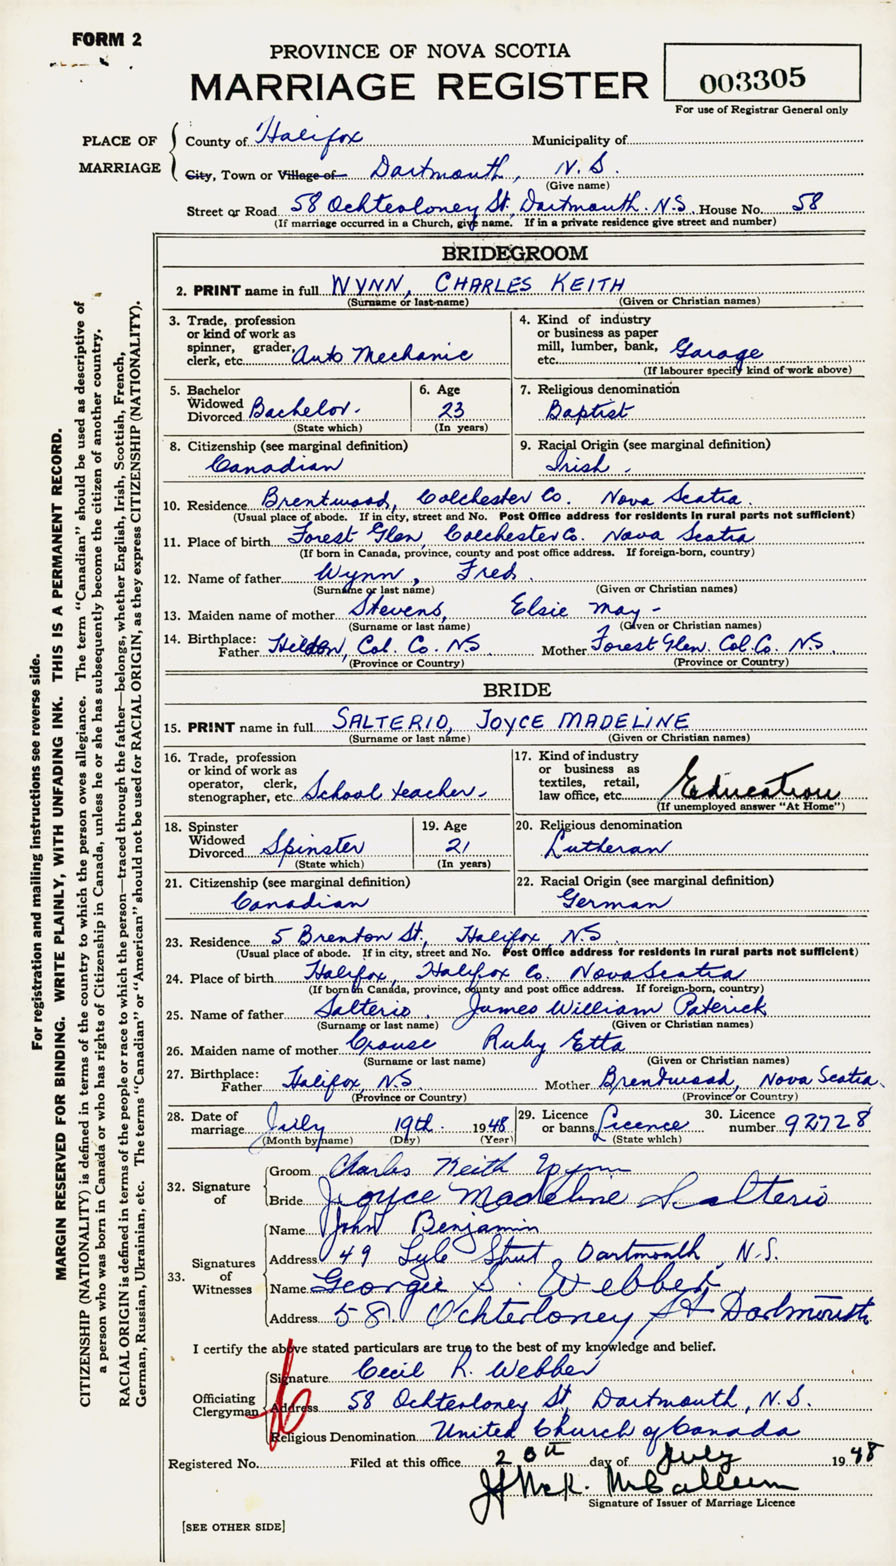 FORM 2
PROVINCE OF NOVA SCOTIA
MARRIAGE REGISTER
003305
For use of Registrar General only
PLACE OF MARRIAGE
County of Halifax Municipality of
City, Town or Village of Dartmouth, N.S.
(Give name)
Street or Road 58 Ochterloney St, Dartmouth. N.S. House No. 58
(If marriage occurred in a Church, give name. If in a private residence give street and number)
BRIDEGROOM
2. PRINT name in full WYNN, CHARLES KEITH
(Surname or last name) (Given or Christian names)
3. Trade, profession or kind of work as spinner, grader, clerk, etc. Auto Mechanic
4. Kind of industry or business as paper mill, lumber, bank, etc. Garage
(If labourer specify kind of work above)
5. Bachelor Widowed Divorced Bachelor.
(State which)
6. Age 23
(In years)
7. Religious denomination
Baptist
8. Citizenship (see marginal definition)
Canadian
9. Racial Origin (see marginal definition)
Irish.
10. Residence Brentwood, Colchester Co. Nova Scotia.
(Usual place of abode. If in city, street and No. Post Office address for residents in rural parts not sufficient)
11. Place of birth Forest Glen Colchester Co. Nova Scotia
(If born in Canada, province, county and post office address. If foreign-born, country)
12. Name of father Wynn, Fred.
(Surname or last name) (Given or Christian names)
13. Maiden name of mother Stevens, Elsie May -
(Surname or last name) (Given or Christian names)
14. Birthplace: Father Hilden, Col. Co. N.S. Mother Forest Glen. Col. Co. N.S.
(Province or Country) (Province or Country)
BRIDE
15. PRINT name in full SALTERIO, JOYCE MADELINE
(Surname or last name) (Given or Christian names)
16. Trade, profession or kind of work as operator, clerk, stenographer, etc. School teacher.
17. Kind of industry or business as textiles, retail, law office, etc. Education
(If unemployed answer "At Home")
18. Spinster Widowed Divorced Spinster
(State which)
19. Age 21
(In years)
20. Religious denomination
Lutheran
21. Citizenship (see marginal definition)
Canadian
22. Racial Origin (see marginal definition)
German
23. Residence 5 Brenton St., Halifax, N.S.
(Usual place of abode. If in city, street and No. Post Office address for residents in rural parts not sufficient)
24. Place of birth Halifax, Halifax Co. Nova Scotia
(If born in Canada, province, county and post office address. If foreign-born, country)
25. Name of father Salterio, James William Paterick
(Surname or last name) (Given or Christian names)
26. Maiden name of mother Crouse Ruby Etta
(Surname or last name) (Given or Christian names)
27. Birthplace: Father Halifax, N.S. Mother Brentwood, Nova Scotia.
(Province or Country) (Province or Country)
28. Date of marriage July 19th. 1948
(Month by name) (Day) (Year)
29. Licence or banns Licence
(State which)
30. Licence number 92728
32. Signature of
Groom Charles Keith Wynn
Bride Joyce Madeline Salterio
33. Signatures of Witnesses
Name John Benjamin
Address 49 Lyle Street, Dartmouth, N.S.
Name Georgie S. Webber
Address 58. Ochterloney St Dartmouth
I certify the above stated particulars are true to the best of my knowledge and belief.
Officiating Clergyman
Signature Cecil R. Webber
Address 58 Ochterloney St, Dartmouth, N.S.
Religious Denomination United Church of Canada
Registered No. Filed at this office 20th day of July 1948
Signature of Issuer of Marriage Licence
[SEE OTHER SIDE]
For registration and mailing instructions see reverse side.
MARGIN RESERVED FOR BINDING. WRITE PLAINLY, WITH UNFADING INK. THIS IS A PERMANENT RECORD.
CITIZENSHIP (NATIONALITY) is defined in terms of the country to which the person owes allegiance. The term "Canadian" should be used as descriptive of
a person who was born in Canada or who has rights of Citizenship in Canada, unless he or she has subsequently become the citizen of another country.
RACIAL ORIGIN is defined in terms of the people or race to which the person—traced through the father—belongs, whether English, Irish, Scottish, French,
German, Russian, Ukrainian, etc. The terms "Canadian" or "American" should not be used for RACIAL ORIGIN, as they express CITIZENSHIP (NATIONALITY).